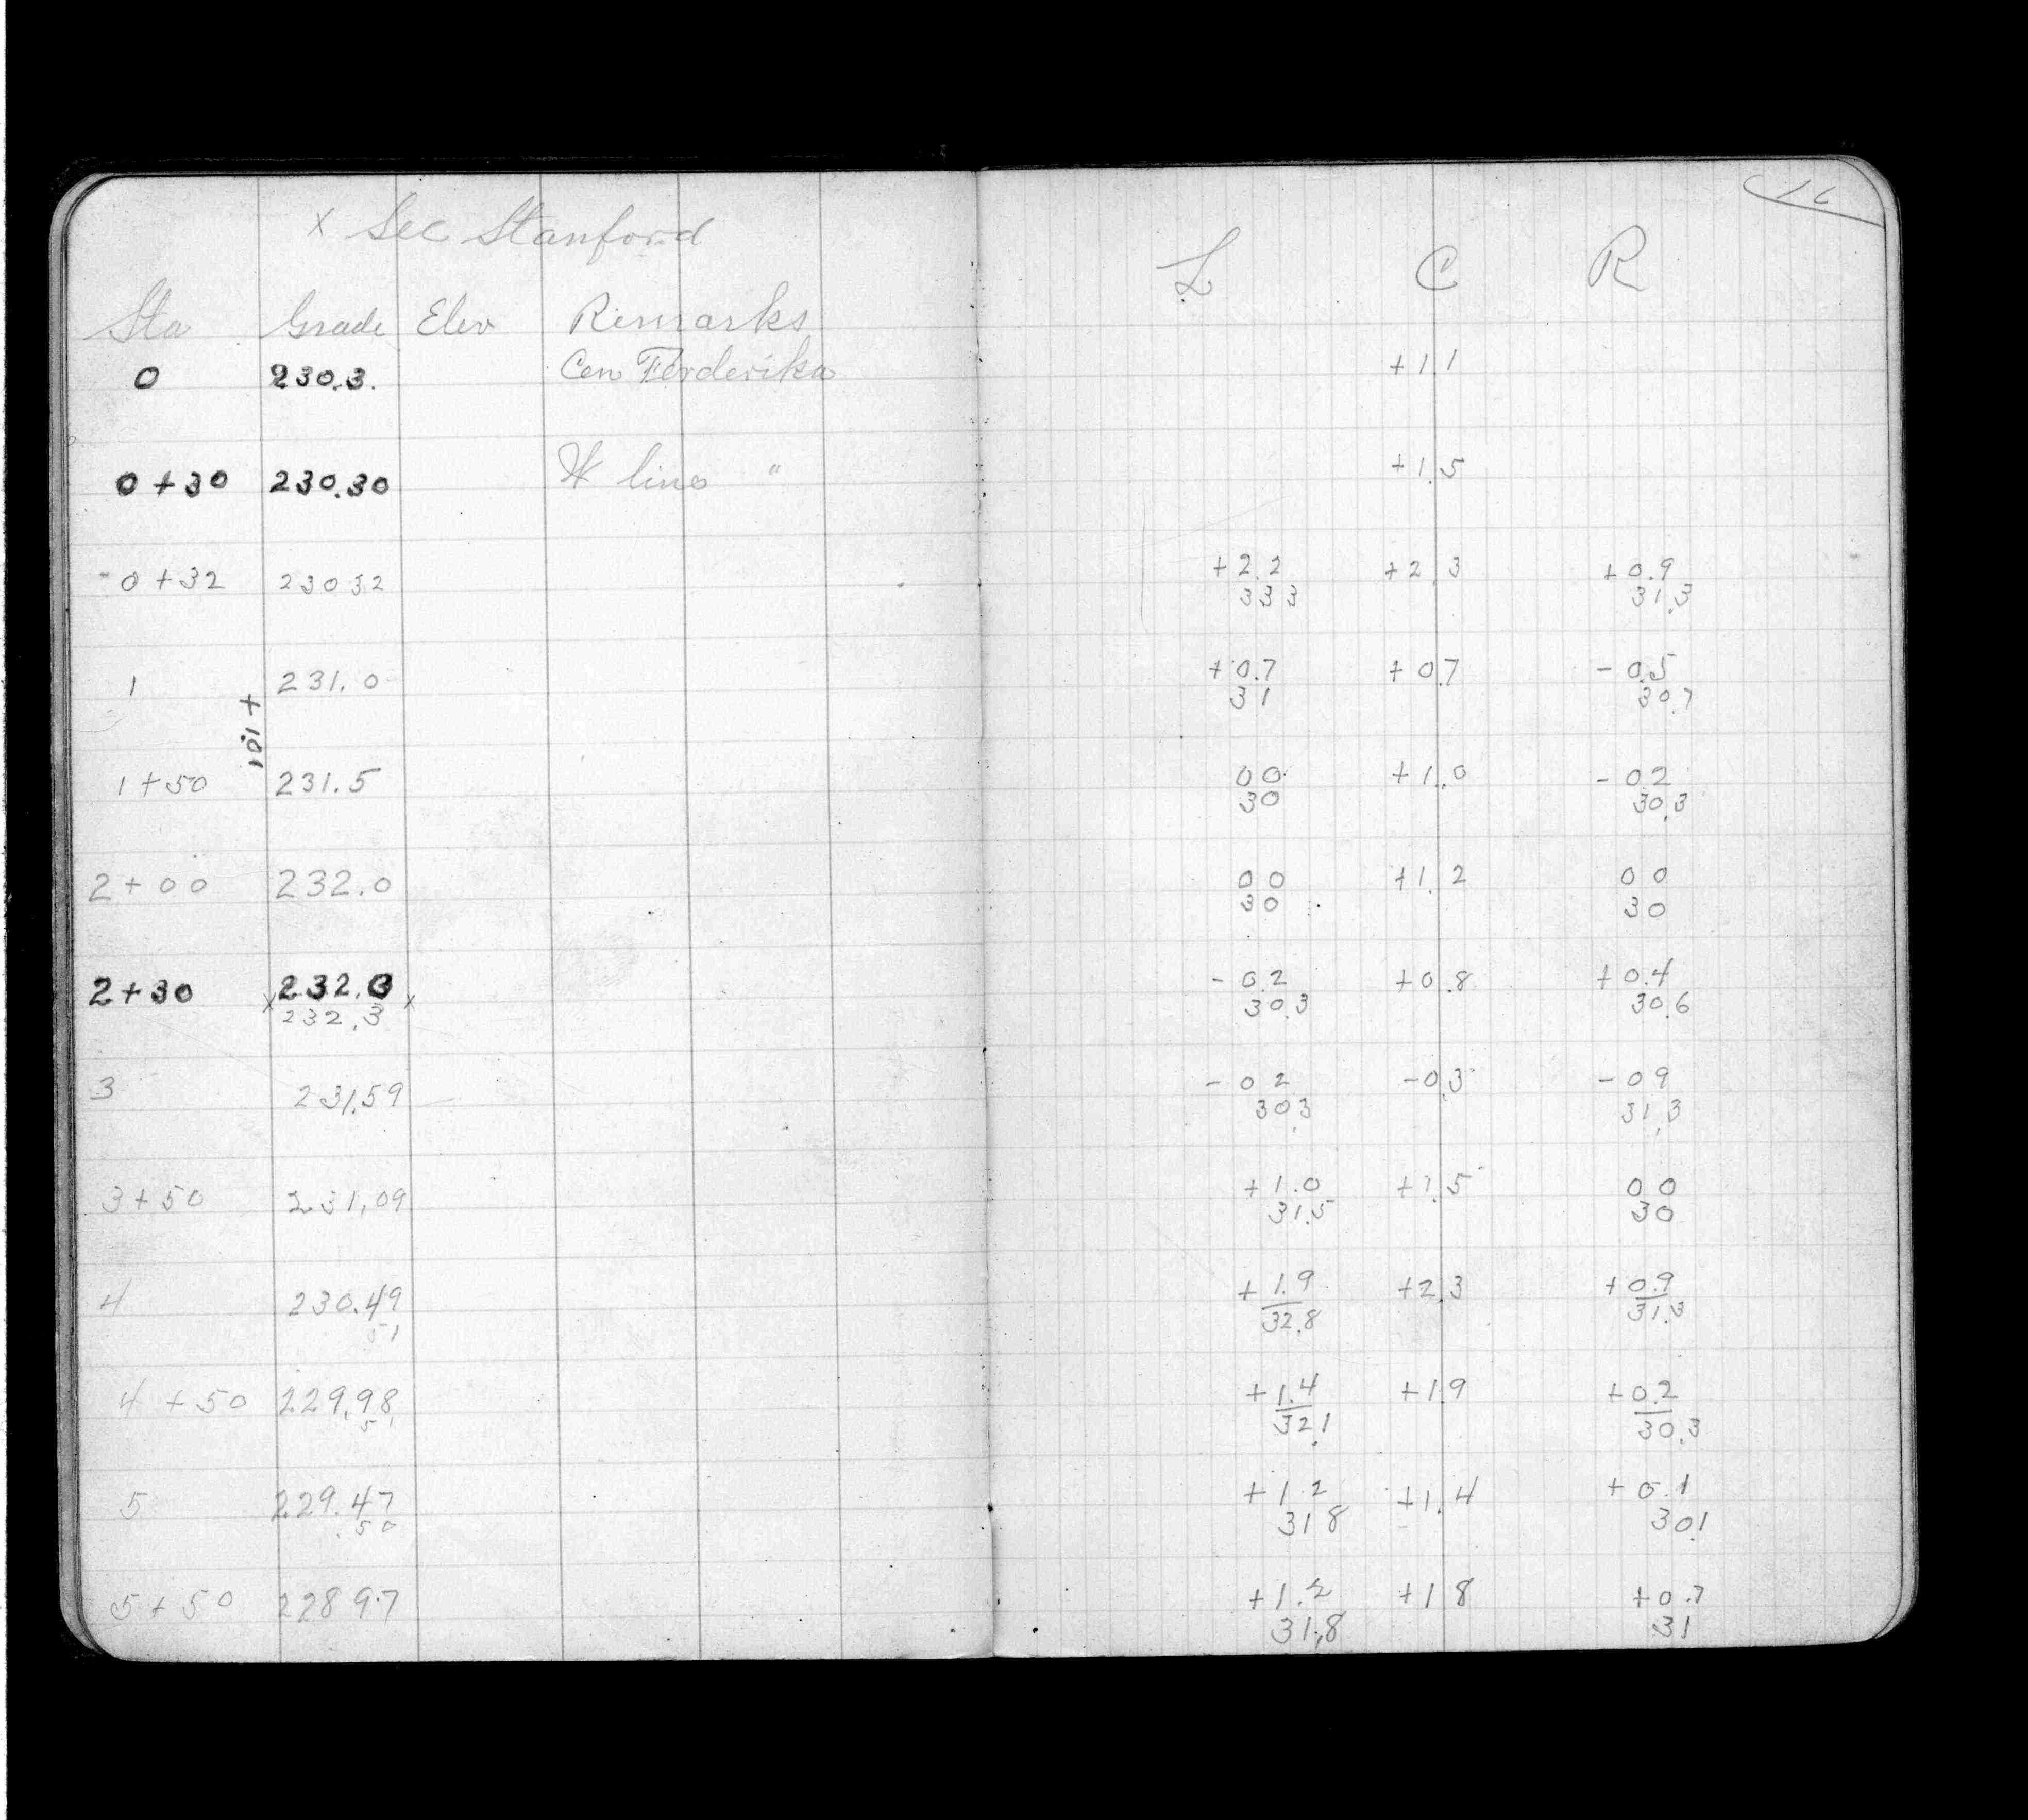 16
x Sec Stanford
L C R
Sta Grade Elev Remarks
0 230.3. Cen Frederika +1.1
0+30 230.30 W line " +1.5
0+32 23032 +2.2 +2.3 +0.9
333 31.3
1 231.0 +0.7 +0.7 -0.5
31 30.7
+1.01
1+50 231.5 00 +1.0 -02
30 30.3
2+00 232.0 00 +1.2 00
30 30
2+30 232.0 -0.2 +0.8 +0.4
x232.3x 30.3 30.6
3 231.59 -02 -0.3 -09
30.3 31.3
3+50 231.09 +1.0 +1.5 00
31.5 30
4 230.49 +1.9 +2.3 +0.9
51 32.8 31.3
4+50 229.98 +1.4 +1.9 +0.2
51 32.1 30.3
5 229.47 +1.2 +1.4 +0.1
.50 318 30.1
5+50 22897 +1.2 +18 +0.7
31.8 31